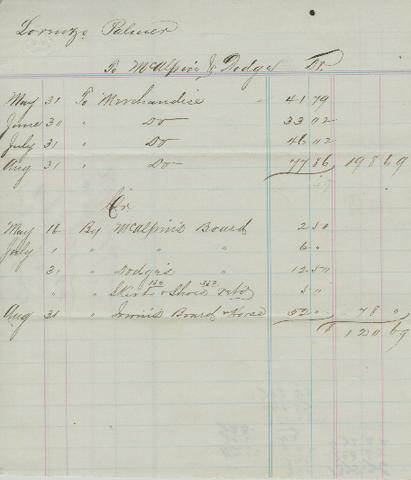 Lorenzo Palmer
To McAlpin & Dodge Dr.
May 31 To Merchandise 41 79
June 30 " Do 33 02
July 31 " Do 46 02
Aug 31 " Do 77 86 198 69
Cr
May 16 By McAlpins Board 2 50
July 1 " " " 6 "
31 " Dodge's " 12 50
" " Skirt 150 & Shoes 350 5 00
Aug 31 " Board & Horse 52 " 78 "
$ 120 69